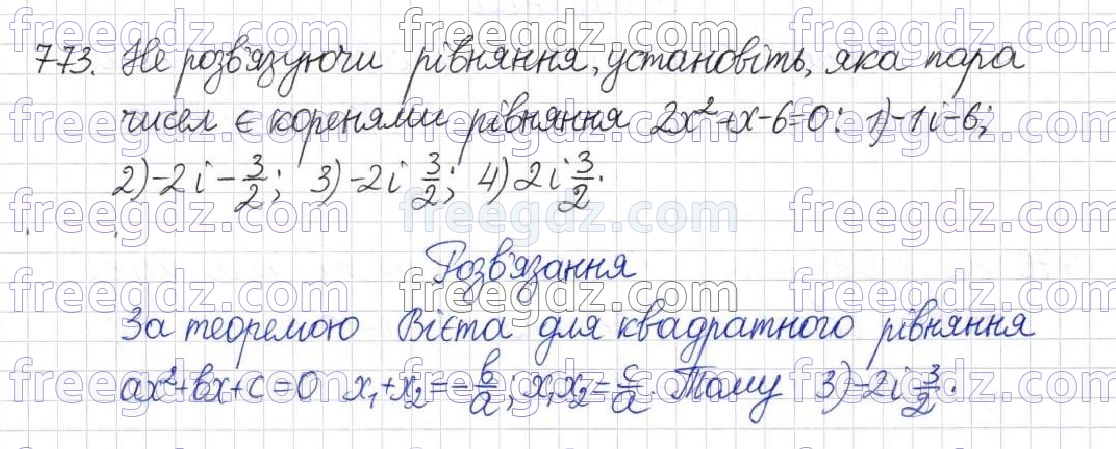 773. Не розв'язуючи рівняння, установіть, яка пара
чисел є коренями рівняння 2x²+x-6=0: 1)-1 і -6;
2)-2 і -3/2; 3)-2 і 3/2; 4) 2 і 3/2.
Розв'язання
За теоремою Вієта для квадратного рівняння
ax²+bx+c=0 x₁+x₂=-b/a; x₁x₂=c/a. Тому 3)-2 і 3/2.
freegdz.com